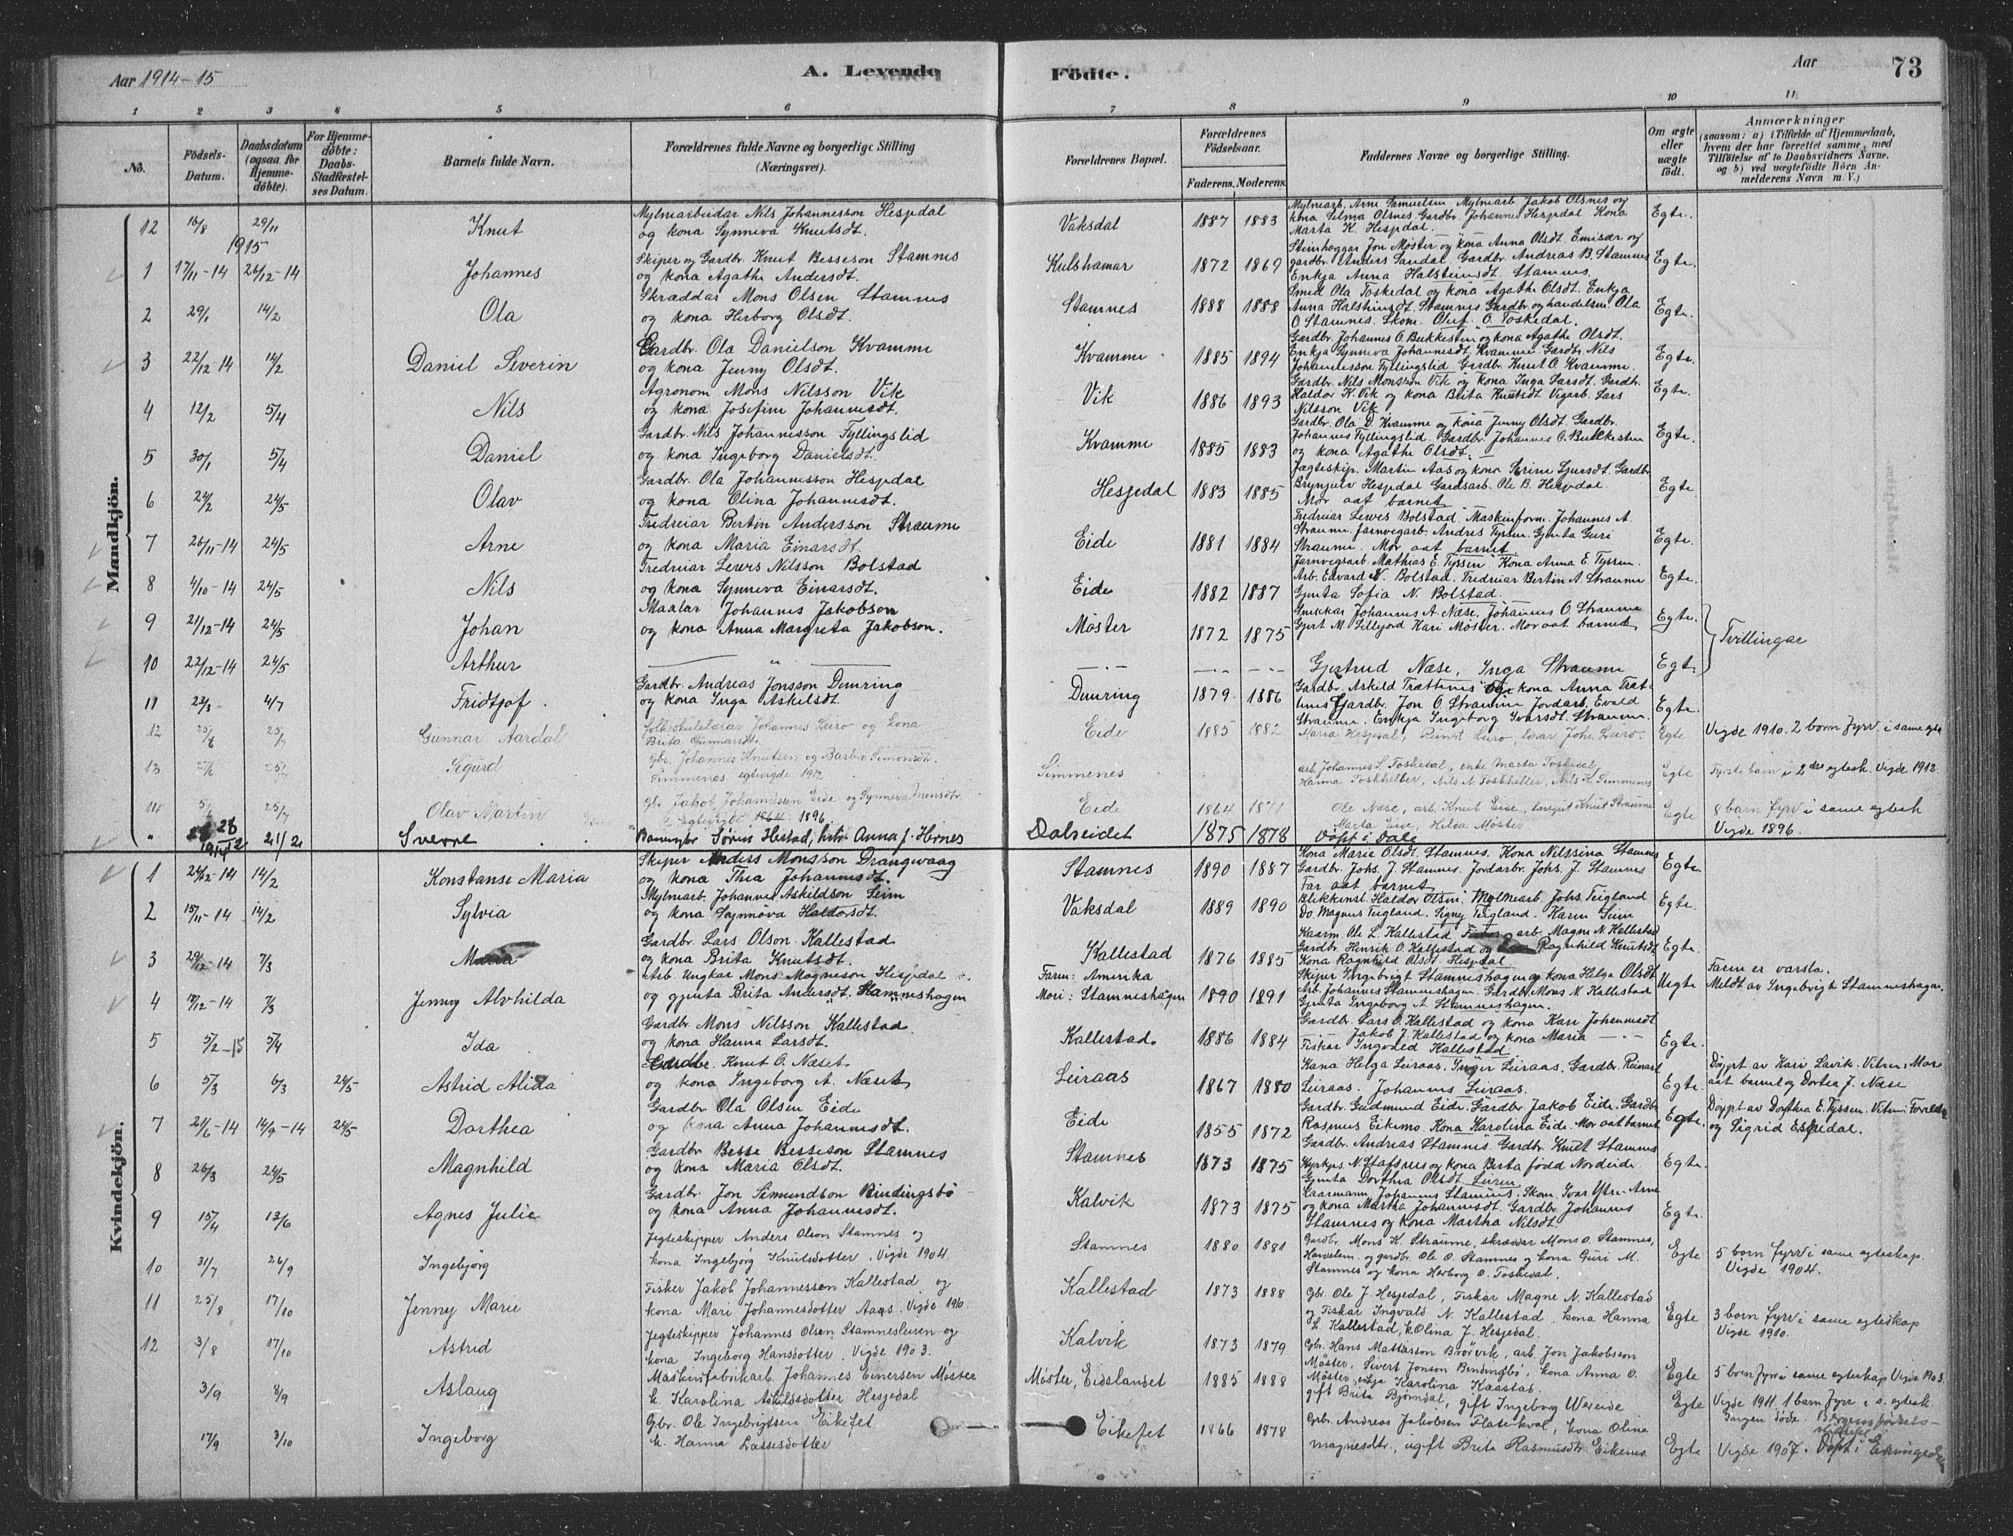 Aar 1914-15
A. Levende
Födte.
Aar
73
1 2 3 4 5 6 7 8 9 10 11
No.
Födsels-Datum.
Daabsdatum (ogsaa for Hjemme-döbte).
For Hjemme-döbte: Daabs-Stadfæstelses Datum.
Barnets fulde Navn.
Forældrenes fulde Navne og borgerlige Stilling (Næringsvei).
Forældrenes Bopæl.
Forældrenes Födselsaar.
Faderens. Moderens.
Faddernes Navne og borgerlige Stilling.
Om ægte eller uægte födt.
Anmærkninger
(saasom: a) i Tilfælde af Hjemmedaab, hvem der har forrettet samme, med Tilföielse af to Daabsvidners Navne, og b) ved uægtefödte Börn Anmelderens Navn m. V.)
Mandkjön.
12 16/8 29/11 Knut Mylnearbeidar Nils Johannesson Hespdal og kona Synneva Knutsdt. Vaksdal 1887 1883 Mylnearb. Arne Samuelsen Mylnearb. Jakob Olsnes og kona Selma Olsnes. Gardbr. Johannes Hespdal Kona Marta K. Hespdal. Egte.
1915
1 17/11-14 26/12-14 Johannes Skiper og Gardbr. Knut Besseson Stamnes og kona Agathe Andersdt. Kulshamar 1872 1869 Steinhoggar Jon Møster og kona Anna Olsdt. Emisær og gardbr. Anders Sandal Gardbr. Andreas B. Stamnes Enkja Anna Halsteinsdt. Stamnes. Egte.
2 29/1 14/2 Ola Skræddar Mons Olsen Stamnes og kona Herborg Olsdt. Stamnes 1888 1888 Smed Ola Toskedal og kona Agathe Olsdt. Enkja Anna Halsteinsdt. Stamnes Gardbr. og handelsm. Ola O. Stamnes. Skom. Oluf O. Toskedal. Egte.
3 22/12-14 14/2 Daniel Severin Gardbr. Ola Danielson Kvamme og kona Jenny Olsdt. Kvamme 1885 1894 Gardbr. Johannes O. Bukkesten og kona Agathe Olsdt. Enkja Synneva Johannesdt. Kvamme Gardbr. Nils Johannesson Fyllingslid Gardbr. Knut O. Kvamme. Egte.
4 12/2 5/4 Nils Agronom Mons Nilsson Vik og kona Josefine Johannesdt. Vik 1886 1893 Gardbr. Nils Monsson Vik og kona Inga Larsdt. Gardbr. Haldor K. Vik og kona Brita Knutsdt Vegarb. Lars Nilsson Vik Egte.
5 30/1 5/4 Daniel Gardbr. Nils Johannesson Fyllingslid og kona Ingeborg Danielsdt. Kvamme 1885 1883 Gardbr. Ola D. Kvamme og kona Jenny Olsdt. Gardbr. Johannes Fyllingslid. Gardbr. Johannes O. Bukkesten og kona Agathe Olsdt. Egte.
6 24/2 24/5 Olav Gardbr. Ola Johannesson Hespdal og kona Olina Johannesdt. Hespdal 1883 1885 Jagteskip. Martin Aas og kona Serine Sjursdt. Gardbr Brynjulv Hespdal Gardsarb. Ole B. Hespdal Mor aat barnet Egte.
7 26/11-14 24/5 Arne Tredreiar Bertin Andersson Straume og kona Maria Einarsdt. Eide 1881 1884 Tredreiar Lewis Bolstad. Maskenform. Johannes A. Straume Jarnvegarb. Andres Tyssen. Gjenta Guri Straume. Mor aat barnet. Egte.
8 4/10-14 24/5 Nils Tredreiar Lewis Nilsson Bolstad og kona Synneva Einarsdt. Eide 1882 1887 Jarnvegsarb. Mathias E. Tyssen Kona Anna E. Tyssen. Arb. Edvard N. Bolstad. Tredreiar Bertin A. Straume Gjenta Sofia N. Bolstad. Egte.
9 21/12-14 24/5 Johan Maalar Johannes Jakobson og kona Anna Margreta Jakobson. Møster 1872 1875 Snikkar Johannes A. Næse. Johannes O. Straume Gjert M. Lilleford Kari Møster. Mor aat barnet Egte. Tvillingar
10 22/12-14 24/5 Arthur Gjertrud Næse, Inga Straume Egte.
11 23/3 4/7 Fridtjof. Gardbr. Andreas Jonsson Duuring og kona Inga Askelsdt. Duuring 1879 1886 Gardbr. Askild Trættenes og kona Anna Trættenes Gardbr. Jon O. Straume Jordarb. Evald Straume. Enkja Ingeborg Ivarsdt. Straume. Egte.
12 25/6 25/7 Gunnar Aardal Folkskulelærar Johannes Leiro og kona Brita Gunnarsdt. Eide 1885 1882 Maria Hespdal, Leiro, lærar Johs. Leiro. Egte Vigde 1910. 2 born fyrr i same egte
13 25/7 Sigurd Gbr. Johannes Knutsen og Barbro Simonsdt. Simmenes egtevigde 1912 Simmenes arb. Johannes L. Toskedal, enke Marta Toskedal, Hanna Toskheller, Nils N. Toskheller, Nils K. Simmenes Egte Fyrste barn i 2dre egtesk. Vigde 1912.
14 5/7 25/7 Olav Martin Gbr. Jakob Johannessen Eide og Synneva Monsdtr. egtevigde 1896 Eide 1864 1871 Ole Næse, arb. Knut Eide, Knut Straume Marta Eide, Hilda Møster Egte 8 barn fyrr i same egtesk Vigde 1896.
" 28/12 1914 21/2 Sverre Søren Hestad, hstr Anna J. Hernes Dalseidet 1875 1878 Döpt i Dale
Kvindekjön.
1 24/12-14 14/2 Konstanse Maria Skiper Anders Monsson Drangevaag og kona Thea Johannesdt. Stamnes 1890 1887 Kona Marie Olsdt. Stamnes. Kona Nilssina Stamnes Gardbr. Johs. J. Stamnes. Jordarbr. Johs. J. Stamnes Far aat barnet Egte.
2 15/11-14 14/2 Sylvia Mylnearb. Johannes Askildson Seim og kona Synnöva Haldorsdt. Vaksdal 1889 1890 Blikkinst. Haldor Olsen. Mylnearb. Johs. Teigland Do. Magnus Teigland. Signy Teigland. Karen Seim Egte.
3 29/12-14 7/3 Maria Gardbr Lars Olson Kallestad og kona Brita Knutsdt. Kallestad 1876 1885 Kaarm. Ole L. Kallestad arb. Magne N. Kallestad Gardbr. Henrik O. Kallestad og Ragnhild Knutsdt. Kona Ragnhild Olsdt. Hespdal Egte.
4 17/12-14 7/3 Jenny Alvhilda Arb. Ungkar Mons Magneson Hespdal og gjenta Brita Andersdt. Stamneshagen Faren: Amerika Mori: Stamneshagen 1890 1891 Skiper Ingebrigt Stamneshagen og kona Helga Olsdt. Arb. Johannes Stamneshagen. Gardbr. Mons N. Kallestad Gjenta Ingeborg A. Stamneshagen. Uegte Faren er varsta. Meldt av Ingebrigt Stamneshagen.
5 5/2-15 5/4 Ida Gardbr. Mons Nilsson Kallestad og kona Hanna Larsdt. Kallestad. 1886 1884 Gardbr. Lars O. Kallestad og kona Kari Johannesdt. Jakob J. Kallestad og kona Maria Fiskar Ingvald Kallestad Egte.
6 5/3 6/3 24/5 Astrid Alida Gardbr. Knut O. Næset. og kona Ingeborg A. Næset Leiraas 1867 1880 Kona Helga Leiraas. Inger Leiraas. Gardbr. Reinert Leiraas. Johannes Leiraas. Egte. Døypt av Kari Lavik. Vitner Mor aat barnet og Dortea J. Næse
7 21/6-14 14/9-14 24/5 Dorthea Gardbr. Ola Olsen Eide og kona Anna Johannesdt. Eide 1855 1872 Gardbr. Gudmund Eide. Gardbr Jakob Eide. Gardbr Rasmus Eikemo. Kona Karolina Eide. Mor aat barnet Egte. Døypt av Dorthea E. Tyssen. Vitni: Foreldre og Sigrid Espedal.
8 26/3 24/5 Magnhild Gardbr Besse Besseson Stamnes og kona Maria Olsdt. Stamnes 1873 1875 Gardbr. Andreas Stamnes Gardbr. Knut Stamnes Kyrkjes. N. Stafsnes og kona Berta född Nordeide Gjenta Dorthea Olsdt. Leiren Egte.
9 15/4 13/6 Agnes Julie Gardbr. Jon Simundson Bindingsbø og kona Anna Johannesdt. Kalvik 1873 1875 Kaarmann Johannes Stamnes. Skom. Ivar Ytre-Arne og kona Martha Johannesdt. Gardbr. Johannes Stamnes og kona Martha Nilsdt. Egte.
10 31/7 26/9 Ingebjørg Jegteskipper Anders Olson Stamnes og kona Ingebjørg Knutsdotter. Vigde 1904. Stamnes 1880 1881 Gardbr. Mons K. Straume, skræddar Mons O. Stamnes, Handelm. og gardbr. Ole O. Stamnes og kona Guri M. Stamnes og kona Herborg O. Toskedal. Egte 5 born fyrr i same egteskap. Vigde 1904.
11 25/8 17/10 Jenny Marie Fisker Jakob Johannessen Kallestad og kona Mari Johannesdotter Aars. Vigde 1910. Kallestad 1873 1888 Gbr. Ole J. Hesjedal, Fiskar Magne N. Kallestad og Fiskar Ingvald N. Kallestad. kona Hanna L. Kallestad, k. Olina J. Hesjedal. Egte 3 born fyrr i same egteskap Vigde 1910.
12 3/8 17/10 Astrid Jegteskipper Johannes Olsen Stamnesleiren og kona Ingeborg Hansdotter. Vigde 1903. Kalvik 1873 1879 Gbr. Hans Mattiasson Brörvik, arb. Jon Jakobsson Møster, Sivert Jonson Bindingbø, kona Anna O. Møster, enkja Karolina Kaastad. Egte 5 born fyrr i same egteskap Vigde 1903.
3/9 8/9 Aslaug Maskinfabrikarb. Johannes Einersen Møster k. Karolina Askilsdotter Hesjedal Møster, Eidslandet 1885 1888 gift Brita Bjørndal, gift Ingeborg Egte Vigde 1911. 1 barn fyrr i s. egtesk. Ingen døde.
17/9 3/10 Ingeborg Gbr. Ole Ingebrigtsen Eikefet k. Hanna Lassesdotter Eikefet 1866 1878 Gbr. Andreas Jakobsen Flatekval, kona Olina Magnesdtr, ugift Brita Rasmusdtr Eikemo. Egte Vigde 1907. Döpt i